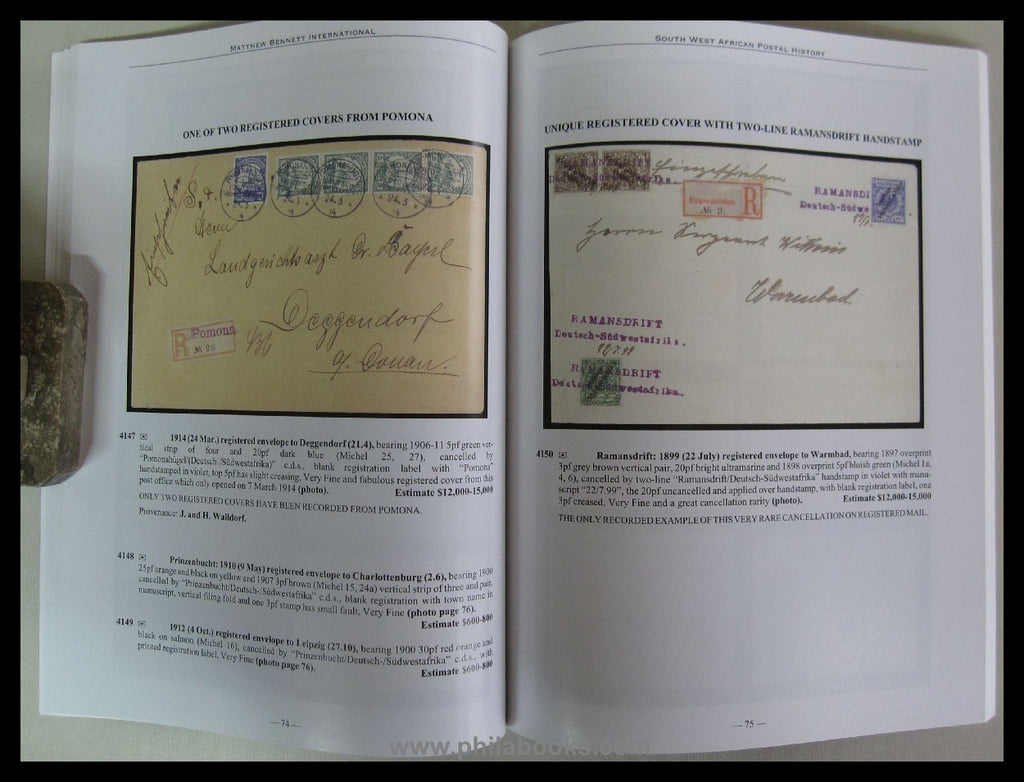 MATTHEW BENNETT INTERNATIONAL
ONE OF TWO REGISTERED COVERS FROM POMONA
Herrn
Landgerichtsarzt Dr. Bayerl
Deggendorf
a. Donau.
R Pomona
№ 23
4147 1914 (24 Mar.) registered envelope to Deggendorf (21.4), bearing 1906-11 5pf green ver-
tical strip of four and 20pf dark blue (Michel 25, 27), cancelled by
"Pomonahügel/Deutsch-/Südwestafrika" c.d.s., blank registration label with "Pomona"
handstamped in violet, top 5pf has slight creasing, Very Fine and fabulous registered cover from this
post office which only opened on 7 March 1914 (photo). Estimate $12,000-15,000
ONLY TWO REGISTERED COVERS HAVE BEEN RECORDED FROM POMONA.
Provenance: J. and H. Walldorf.
4148 Prinzenbucht: 1910 (9 May) registered envelope to Charlottenburg (2.6), bearing 1900
25pf orange and black on yellow and 1907 3pf brown (Michel 15, 24a) vertical strip of three and pair,
cancelled by "Prinzenbucht/Deutsch-/Südwestafrika" c.d.s., blank registration with town name in
manuscript, vertical filing fold and one 3pf stamp has small fault, Very Fine (photo page 76).
Estimate $600-800
4149 1912 (4 Oct.) registered envelope to Leipzig (27.10), bearing 1900 30pf red orange and
black on salmon (Michel 16), cancelled by "Prinzenbucht/Deutsch-/Südwestafrika" c.d.s., with
printed registration label, Very Fine (photo page 76). Estimate $600-800
—74—
SOUTH WEST AFRICAN POSTAL HISTORY
UNIQUE REGISTERED COVER WITH TWO-LINE RAMANSDRIFT HANDSTAMP
Einschreiben
Eingeschrieben R
№ 2.
RAMANSDR
Deutsch-Südwe
Herrn Sergeant
Warmbad
RAMANSDRIFT
Deutsch-Südwestafrika.
22/7.99
RAMANSDRIFT
Deutsch-Südwestafrika.
4150 Ramansdrift: 1899 (22 July) registered envelope to Warmbad, bearing 1897 overprint
3pf grey brown vertical pair, 20pf bright ultramarine and 1898 overprint 5pf bluish green (Michel 1a,
4, 6), cancelled by two-line "Ramansdrift/Deutsch-Südwestafrika" handstamp in violet with manu-
script "22/7.99", the 20pf uncancelled and applied over handstamp, with blank registration label, one
3pf creased, Very Fine and a great cancellation rarity (photo). Estimate $12,000-15,000
THE ONLY RECORDED EXAMPLE OF THIS VERY RARE CANCELLATION ON REGISTERED MAIL.
—75—
www.philabooks.com